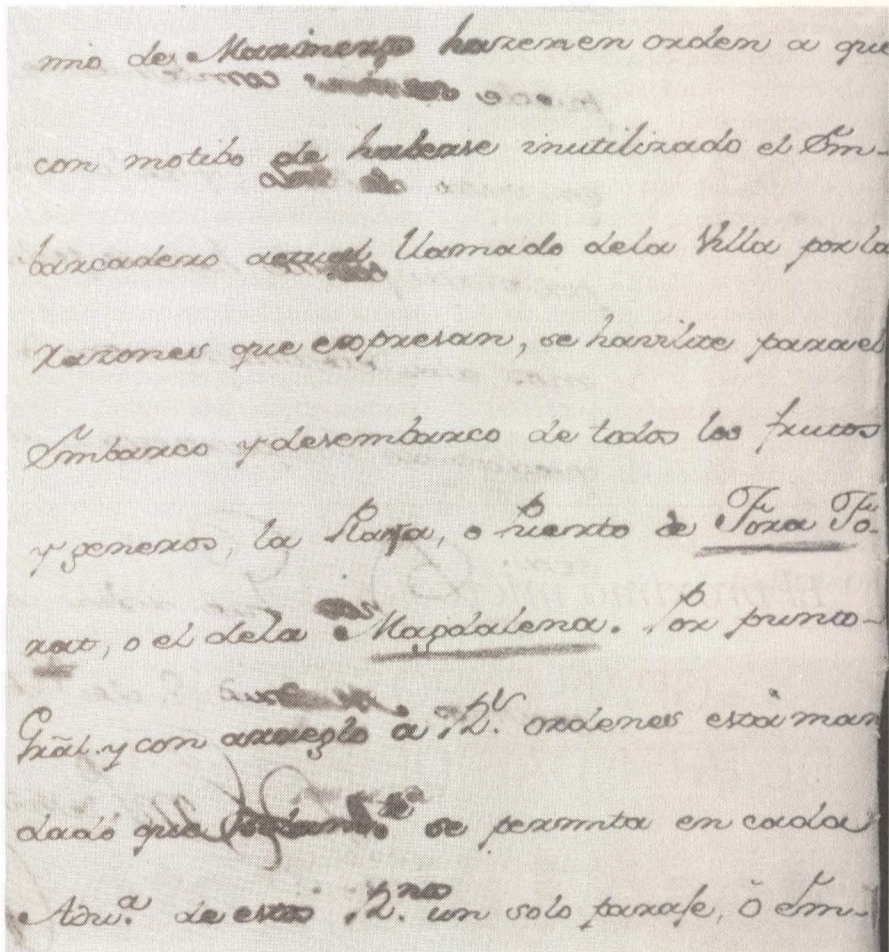 mio de Marineros hazen en orden a que
con motibo de haberse inutilizado el Em-
barcadero actual llamado dela Villa por la
razones que expresan, se havilite para el
Embarco y desembarco de todos los frutos
y generos, la Playa, o Puerto de Foxa Fo-
rat, o el dela Magdalena. Por punto
Gral. y con arreglo à Rs. ordenes està man
dado que se permita en cada
Adu.a de estos R.nos un solo paraje, ò Em-